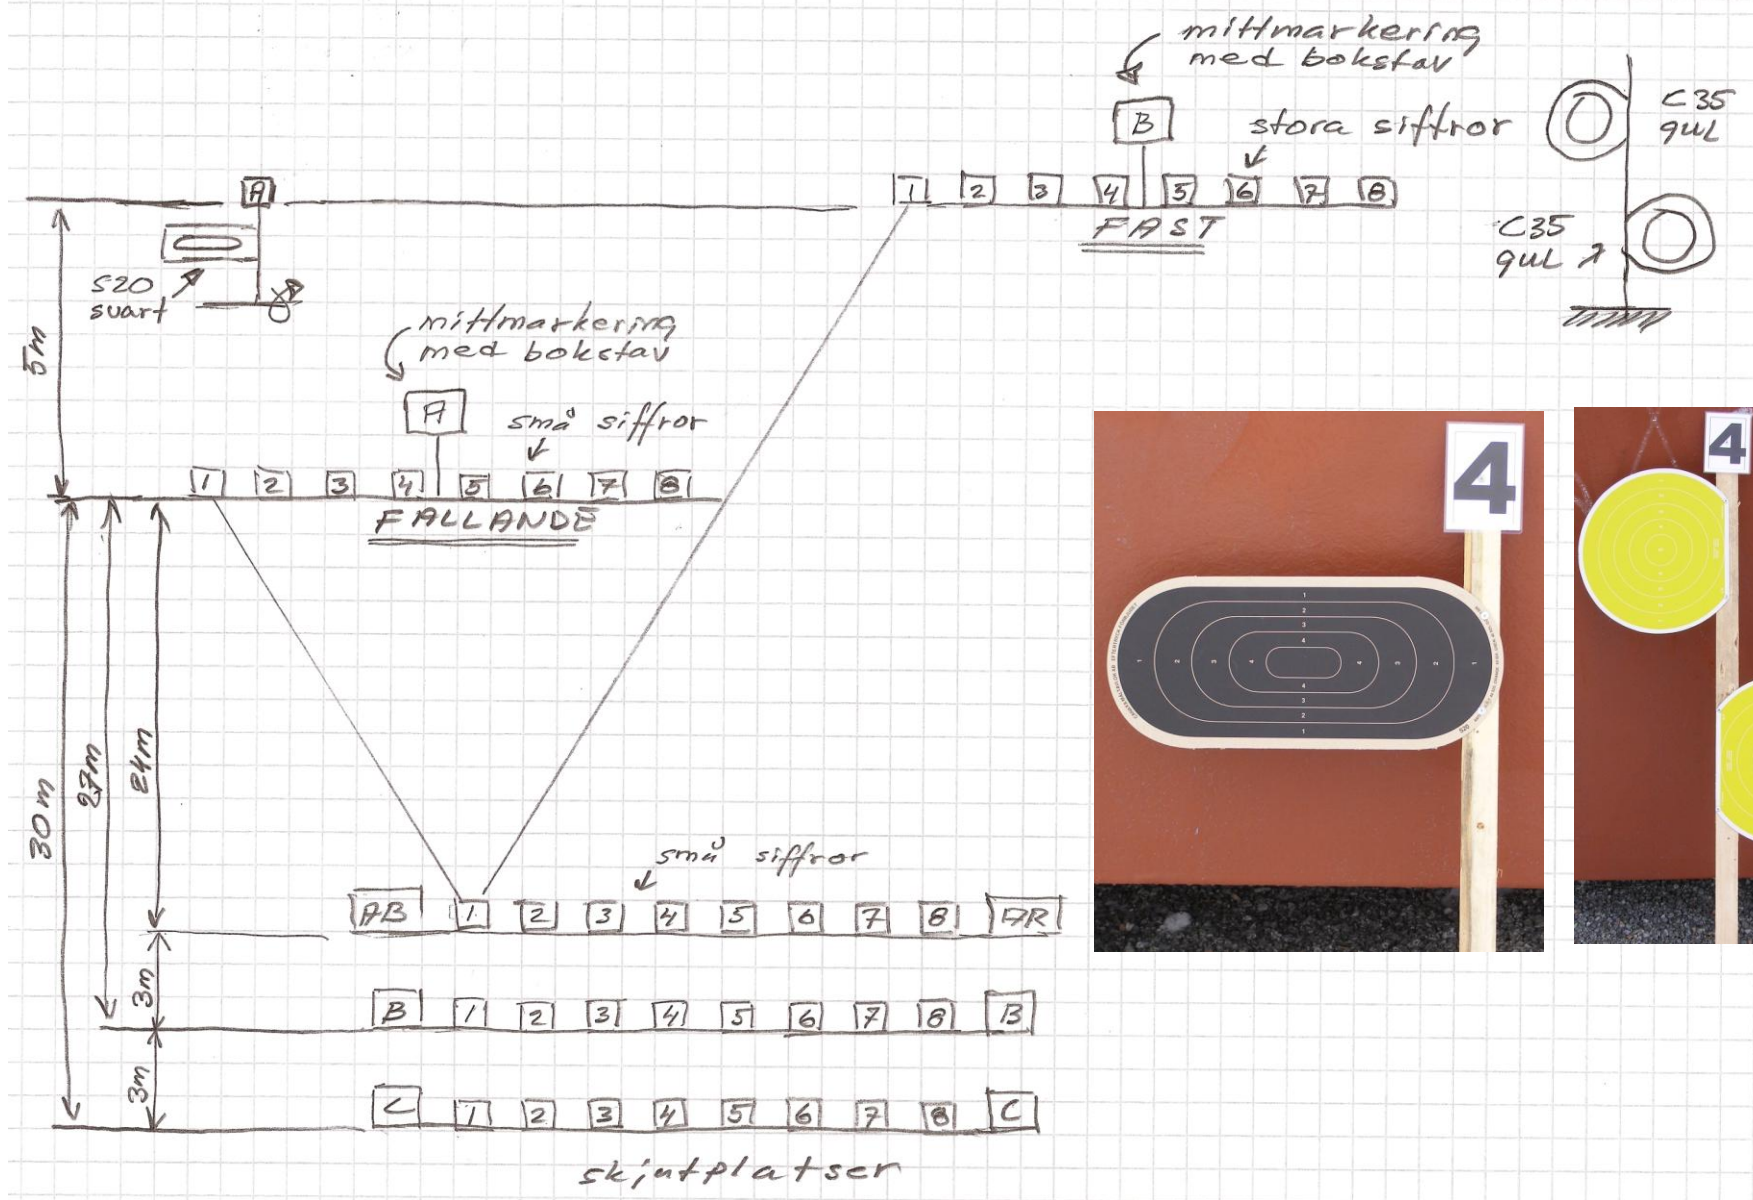 mittmarkering
med bokstav
B
stora siffror
C35
gul
A
1 2 3 4 5 6 7 8
FAST
C35
gul
S20
svart
mittmarkering
med bokstav
5m
A
små siffror
1 2 3 4 5 6 7 8
FALLANDE
4
4
1
2
3
4
1 2 3 4 4 3 2 1
4
3
2
1
30m
27m
24m
små siffror
AB 1 2 3 4 5 6 7 8 AR
3m
B 1 2 3 4 5 6 7 8 B
3m
C 1 2 3 4 5 6 7 8 C
skjutplatser